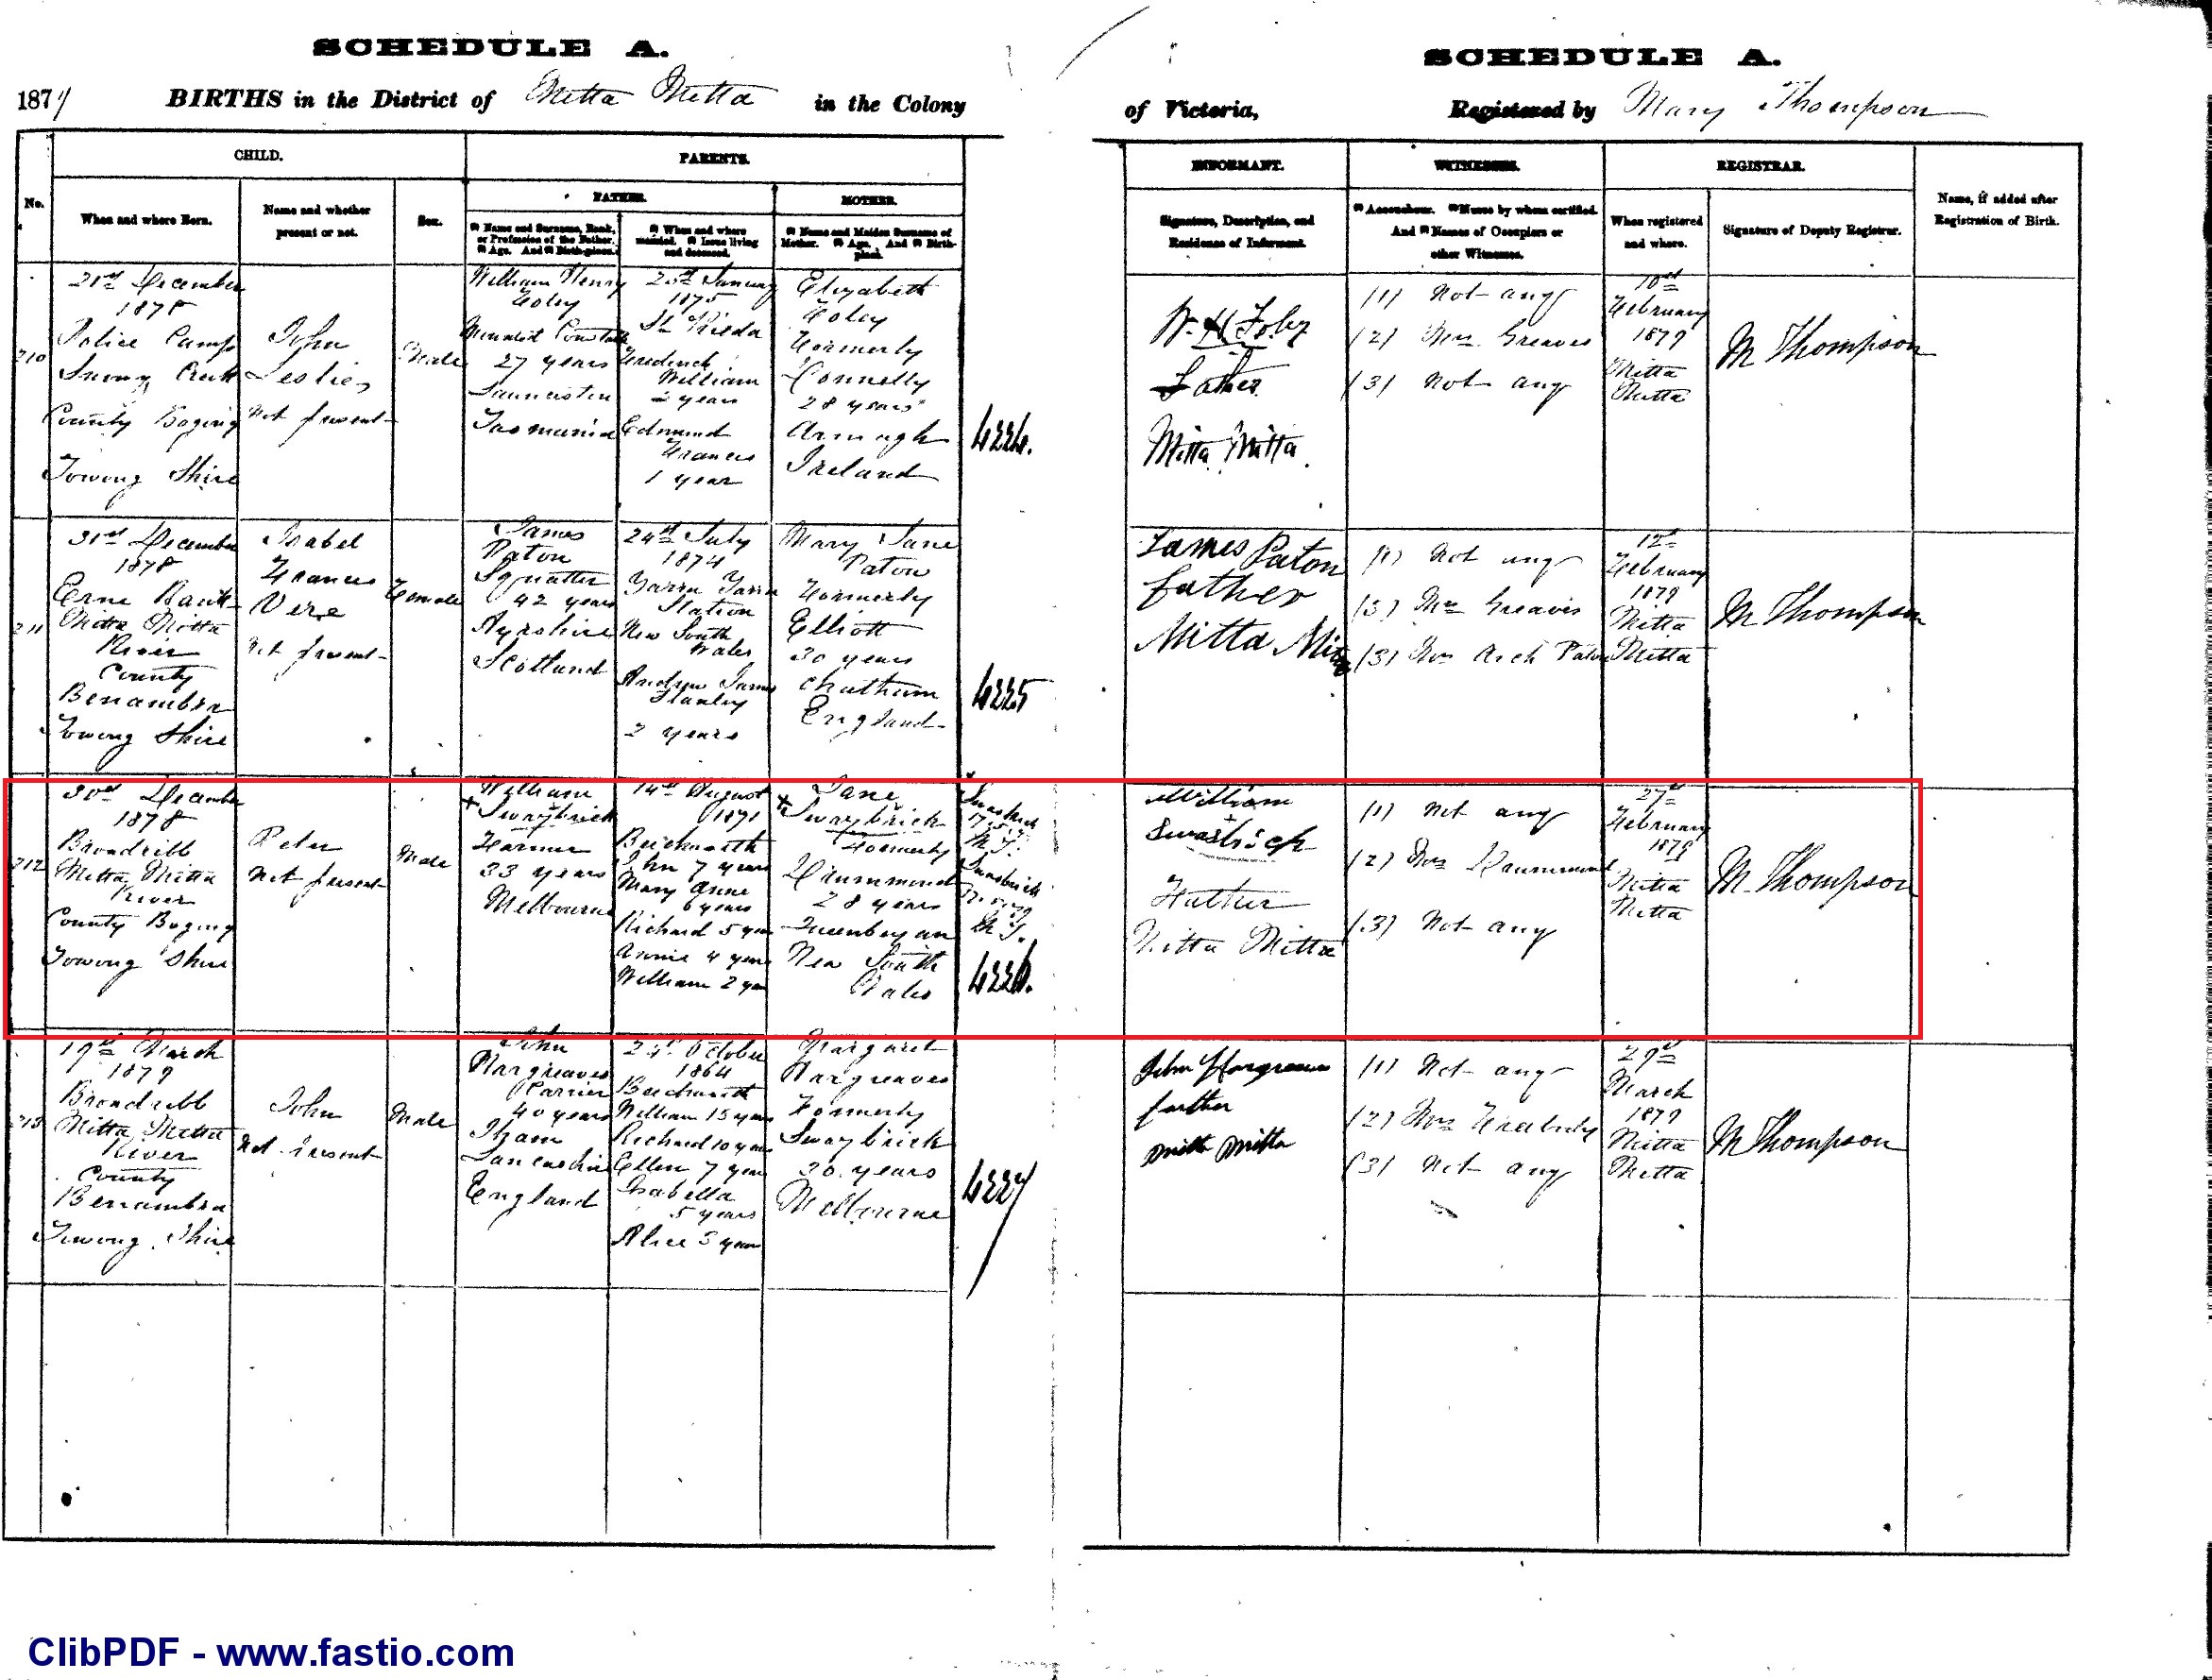 SCHEDULE A.
SCHEDULE A.
187
BIRTHS in the District of Mitta Mitta in the Colony
of Victoria, Registered by Mary Thompson
CHILD.
PARENTS.
INFORMANT.
WITNESSES.
REGISTRAR.
No.
When and where Born.
Name and whether
present or not.
Sex.
FATHER.
MOTHER.
Name and Surname, Rank,
or Profession of the Father.
Age. And Birthplace.
When and where
married. Issue living
and deceased.
Name and Maiden Surname of
Mother. Age. And Birth-
place.
Signature, Description, and
Residence of Informant.
Accoucheur. Nurse by whom certified.
And Names of Occupiers or
other Witnesses.
When registered
and where.
Signature of Deputy Registrar.
Name, if added after
Registration of Birth.
210
21st December
1878
Police Camp
Snowy Creek
County Bogong
Towong Shire
John
Leslie
Not present
Male
William Henry
Foley
Mounted Constable
27 years
Launceston
Tasmania
January
1875
St Kilda
Frederick
William
2 years
Edmund
Francis
1 year
Elizabeth
Foley
Formerly
Connelly
28 years
Armagh
Ireland
W. H. Foley
Father
Mitta Mitta
(1) Not any
(2) Mrs Greaves
(3) Not any
10th
February
1879
Mitta
Mitta
M Thompson
211
31st December
1878
Erne Bank
Mitta Mitta
River
County
Benambra
Towong Shire
Isabel
Frances
Vere
Not present
Female
James
Paton
Squatter
42 years
Ayrshire
Scotland
24th July
1874
Yarra Yarra
Station
New South
Wales
Andrew James
Stanley
2 years
Mary Jane
Paton
Formerly
Elliott
30 years
Chatham
England
4225
James Paton
father
Mitta Mitta
(1) Not any
(2) Mrs Greaves
(3) Mrs Arch Paton
12th
February
1879
Mitta
Mitta
M Thompson
212
30th December
1878
Broadribb
Mitta Mitta
River
County Bogong
Towong Shire
Peter
Not present
Male
William
Swaybrick
Farmer
33 years
Melbourne
14th August
1871
Beechworth
John 7 years
Mary Anne
6 years
Richard 5 years
Annie 4 years
William 2 years
Jane
Swaybrick
Formerly
Drummond
28 years
Queenbeyan
New South
Wales
M T.
M T.
4226.
William
Swasbrick
Father
Mitta Mitta
(1) Not any
(2) Mrs Drummond
(3) Not any
27th
February
1879
Mitta
Mitta
M Thompson
213
19th March
1879
Broadribb
Mitta Mitta
River
County
Benambra
Towong Shire
John
Not present
Male
John
Hargreaves
Carrier
40 years
Lancashire
England
24th October
1864
Beechworth
William 13 years
Richard 10 years
Ellen 7 years
Isabella
5 years
Alice 3 years
Margaret
Hargreaves
Formerly
Swaybrick
30 years
Melbourne
4227
John Hargreaves
father
Mitta Mitta
(1) Not any
(2) Mrs
(3) Not any
29th
March
1879
Mitta
Mitta
M Thompson
ClibPDF - www.fastio.com